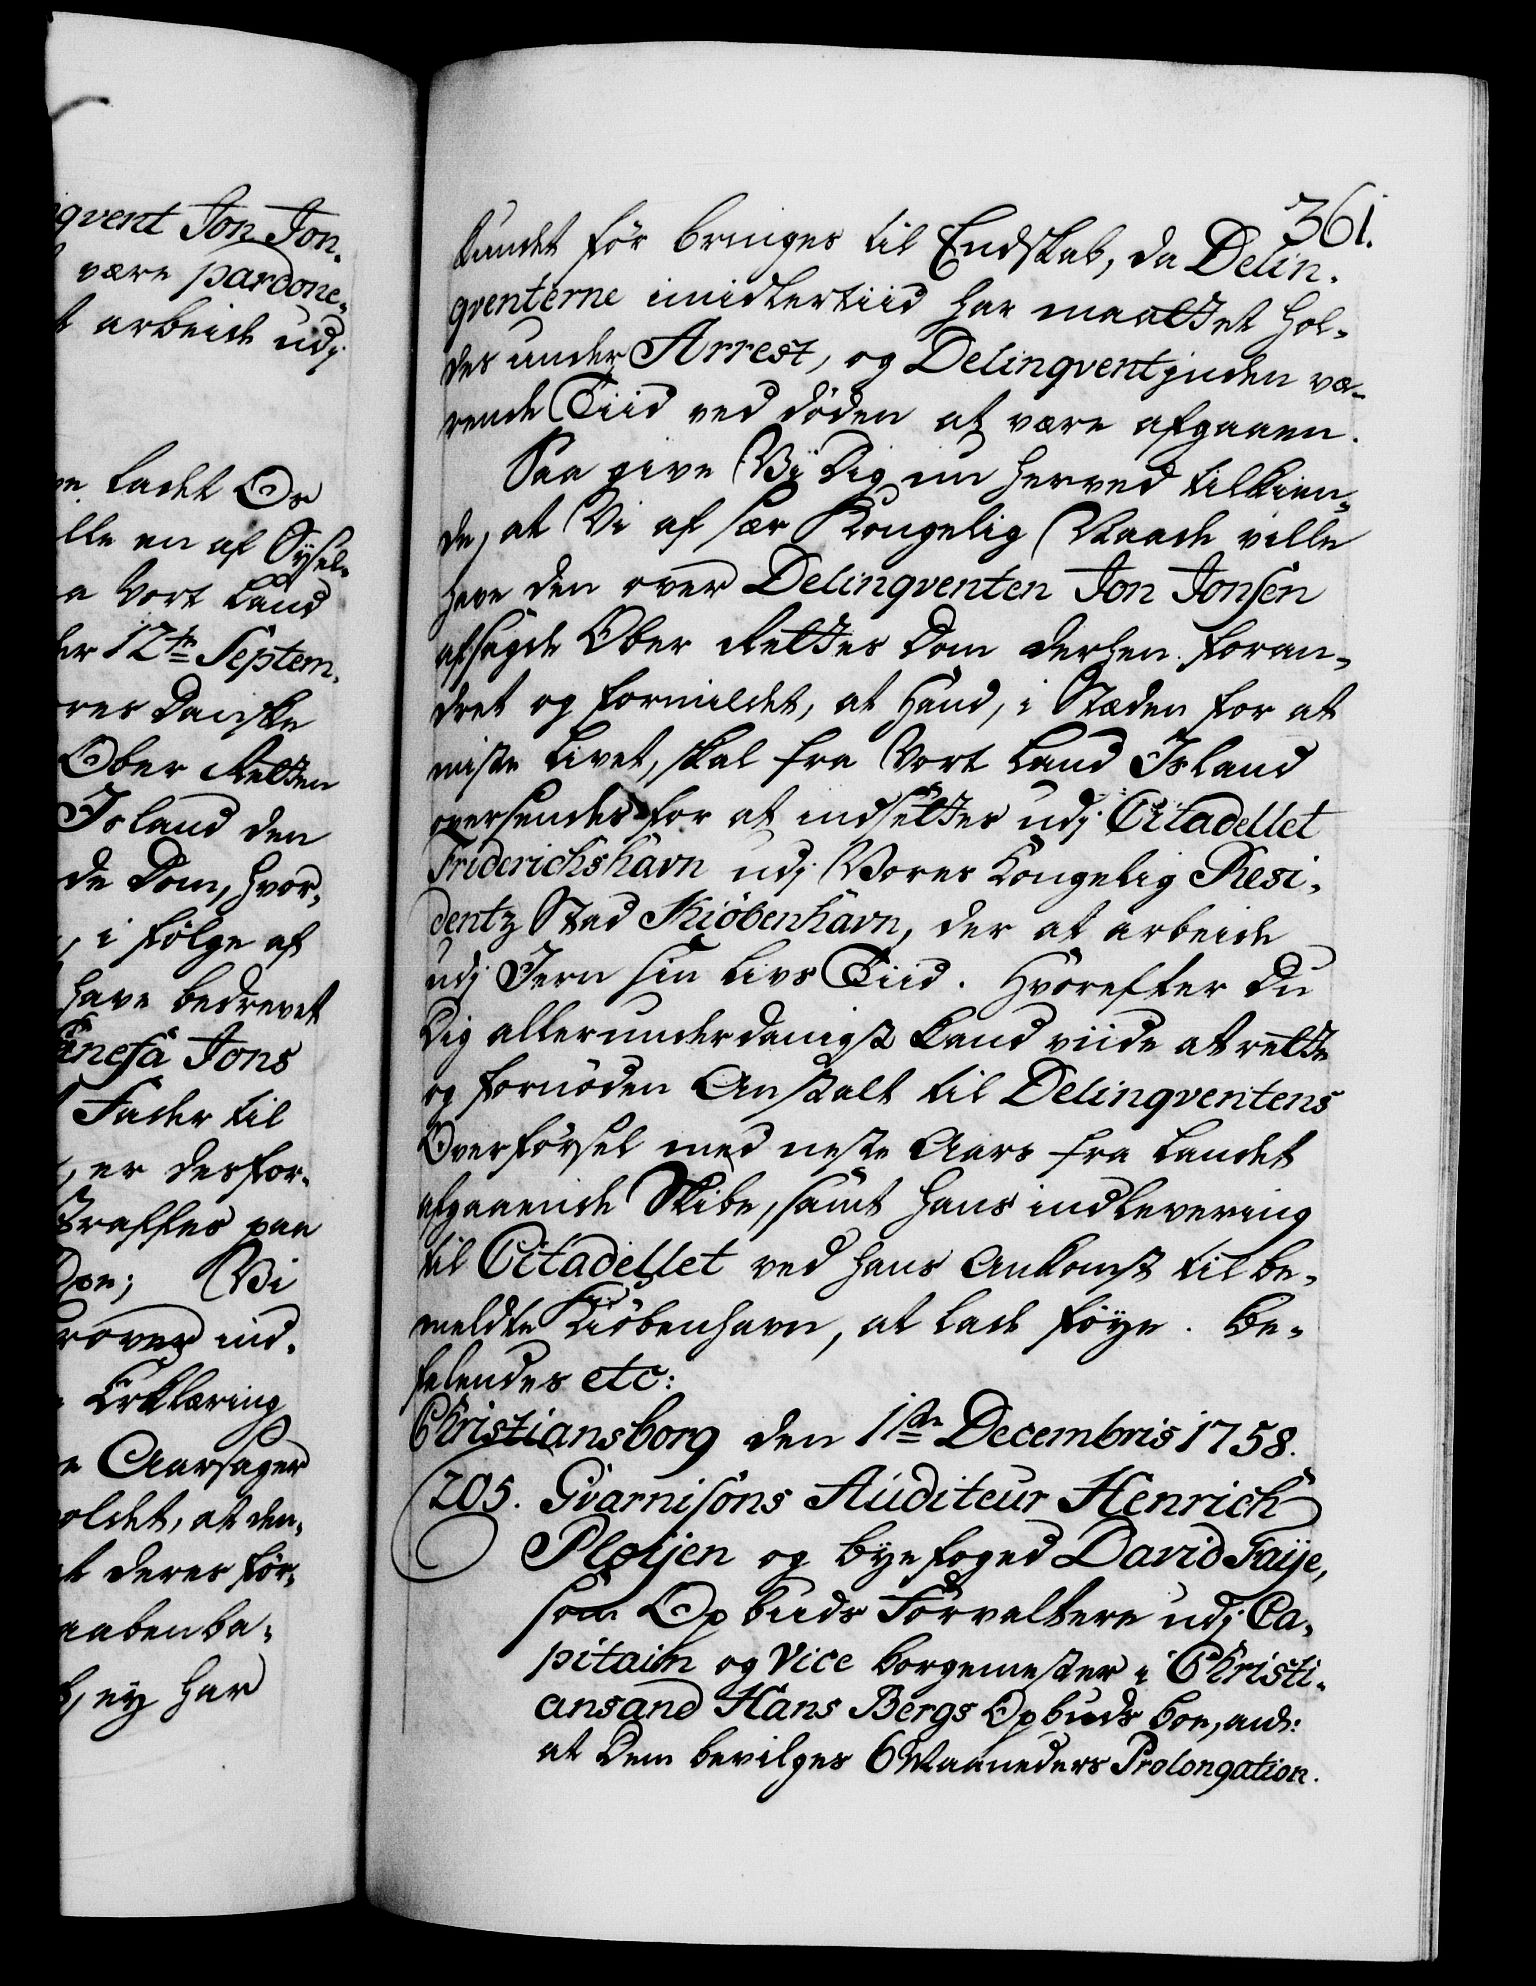 qvent Jon Jon-
være pardone-
arbeide udj
ladet Or
lle en af Sysel-
a Vort Land
der 12te Septem-
res Danske
Ober Retten
Island den
de Dom, hvor-
, i følge af
have bedrevet
Jons
Fader til
, er desfor-
Straffes paa
Vi
prøver ind-
Erklæring
Aarsager
oldet, at den-
t deres før-
aabenba-
ey har
361.
kundet før bringes til Endskab, da Delin-
qventerne imidlertiid har maattet hol-
des under Arrest, og Delinqventinden væ-
rende Tiid ved døden at være afgaaen.
Saa give Vi Dig nu herved tilkien-
de, at Vi af sær Kongelig Naade ville
have den over Delinqventen Jon Jonsen
afsagde Ober Rettes Dom derhen foran-
dret og formildet, at Hand, i Stæden for at
miste Livet, skal fra Vort Land Island
oversendes for at indsættes udj Citadellet
Friderichshavn udj Vores Kongelig Resi-
dentz Stad Kiöbenhavn, der at arbeide
udj Jern sin Livs Tiid. Hvorefter Du
Dig allerunderdanigst kand viide at rette
og fornöden Anstalt til Delinqventens
Overförsel med neste Aars fra Landet
afgaaende Skibe, samt hans indlevering
til Citadellet ved hans Ankomst til be-
meldte Kiöbenhavn, at lade föye. Be-
falendes etc:
Christiansborg den 1ste Decembris 1758.
205. Gvarnisons Auditeur Henrich
Pløyen og Byefoged David Faÿe,
som Opbuds Forvaltere udj Ca-
pitain og Vice borgemester i Christi-
ansand Hans Bergs Opbuds boe, anh:
at Dem bevilges 6 Maaneders Prolongation.